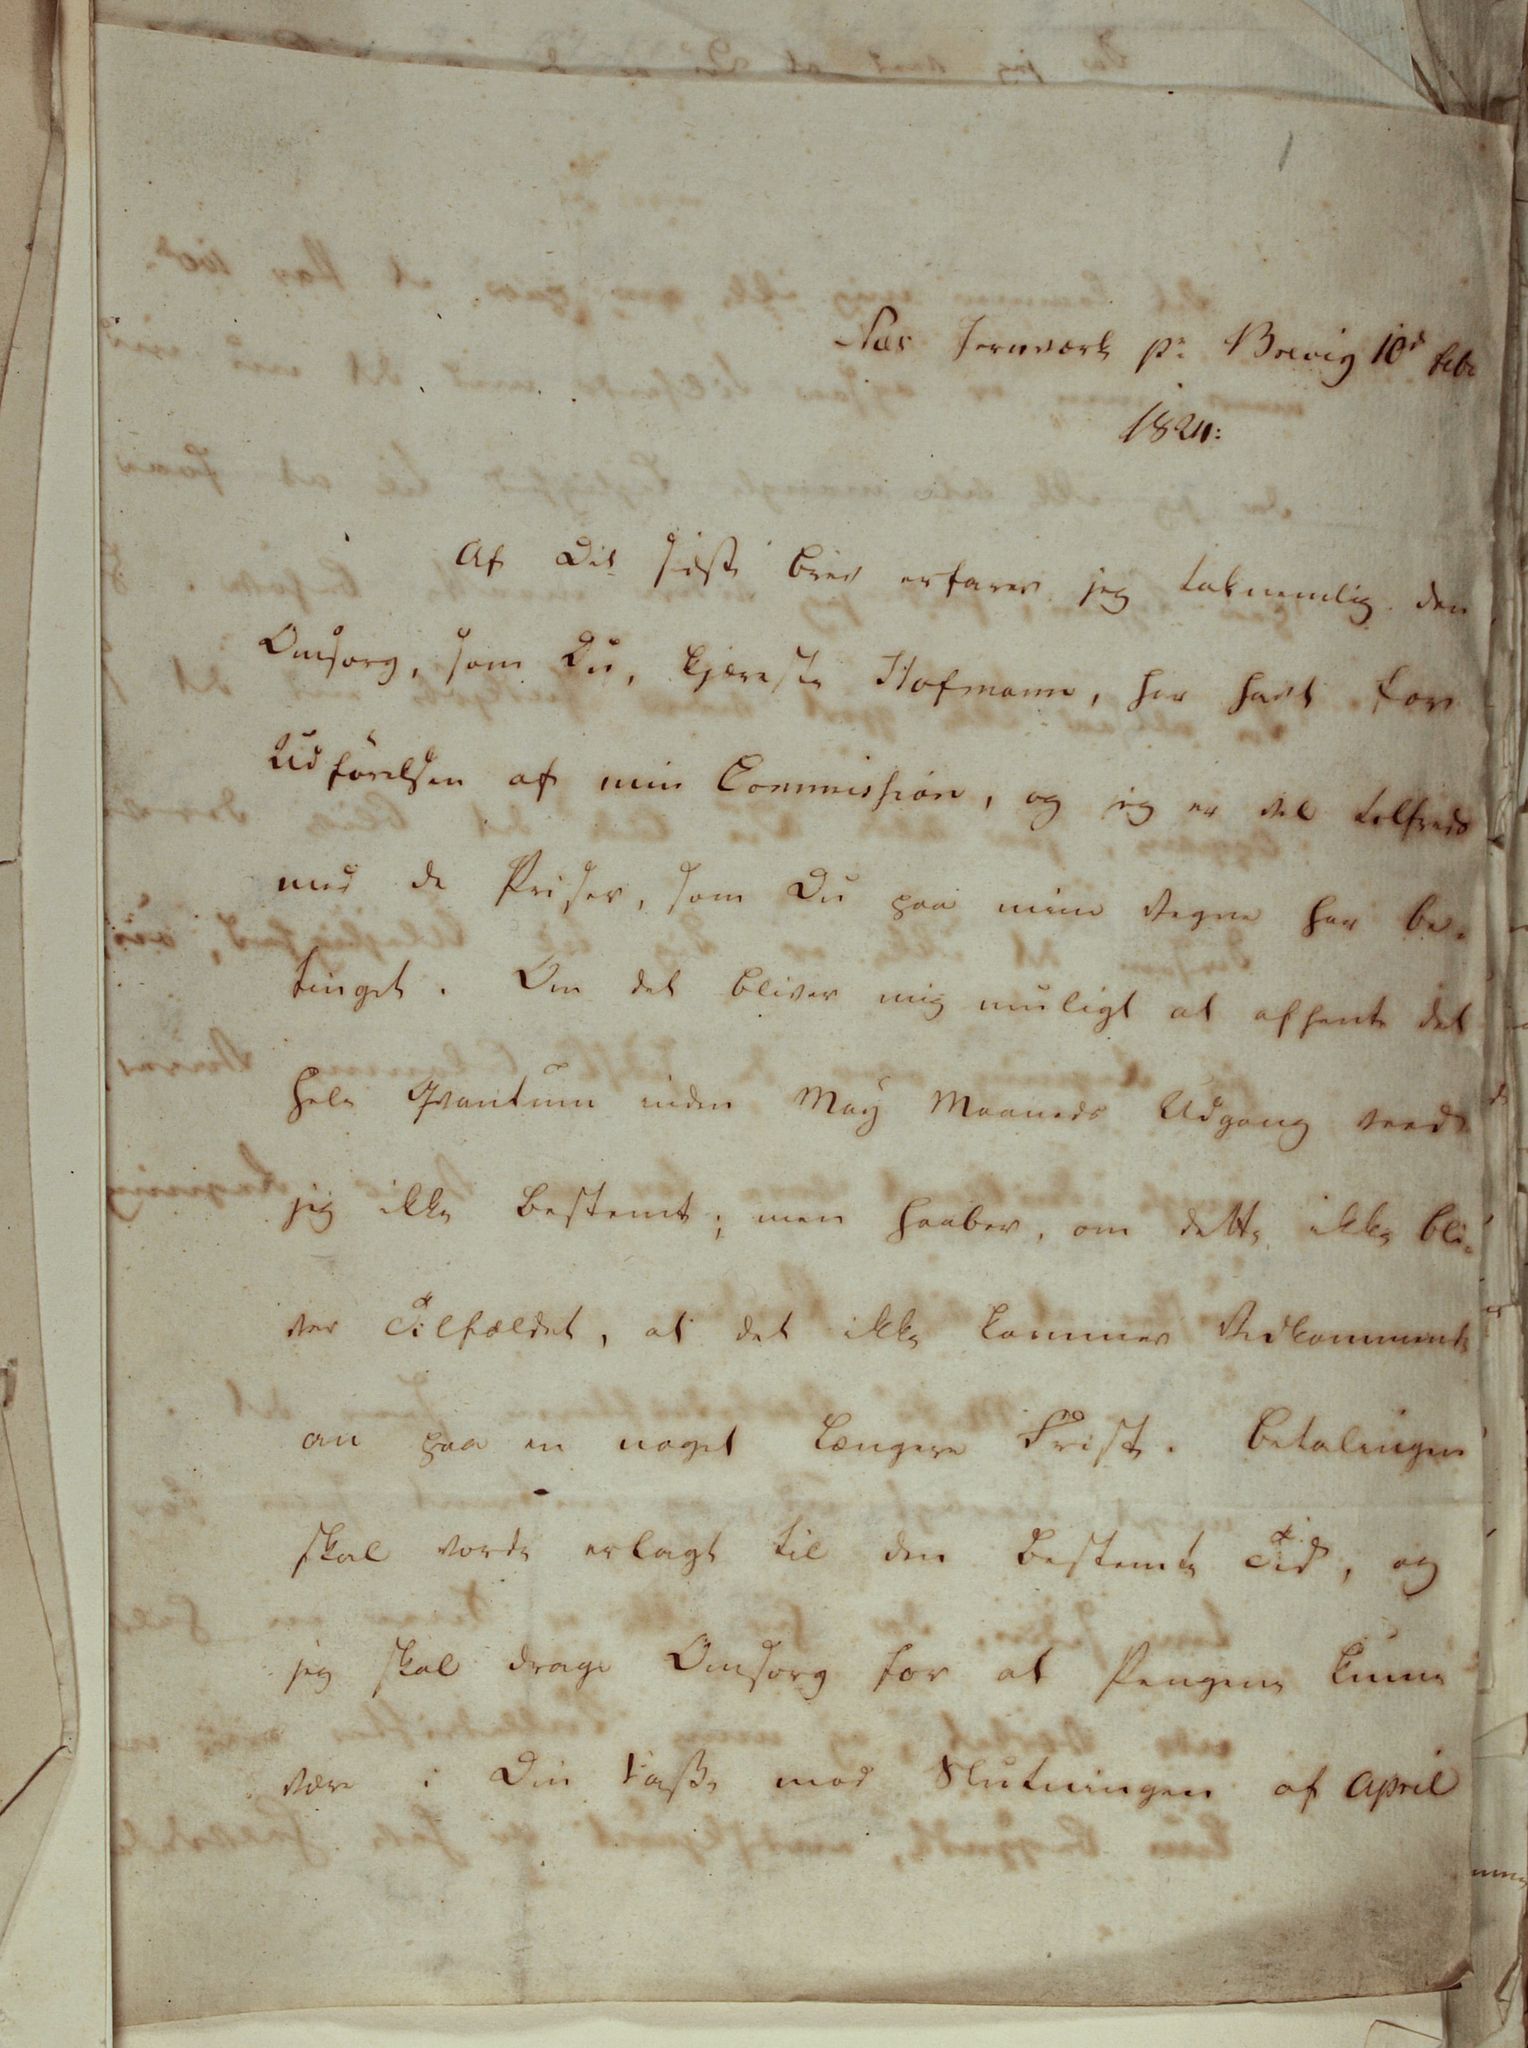 Næs Jernværk pr Brevig 10d febr
Af Dit sidste brev erfarer jeg taknemlig den
Omsorg, som Du, kjæreste Hofmann, har havt for
Udførelsen af min Commission, og jeg er vel tilfreds
med de Priser, som Du paa mine vegne har be-
tinget. Om det bliver mig muligt at afhente det
hele Qvantum inden May Maaneds Udgang veed
jeg ikke bestemt; men haaber, om dette ikke bli-
ver Tilfældet, at det ikke kommer Vedkommende
an paa en noget længere Frist. Betalingen
skal vorde erlagt til den bestemte Tid, og
jeg skal drage Omsorg for at Pengene kunne
være i Din Kasse mod Slutningen af April